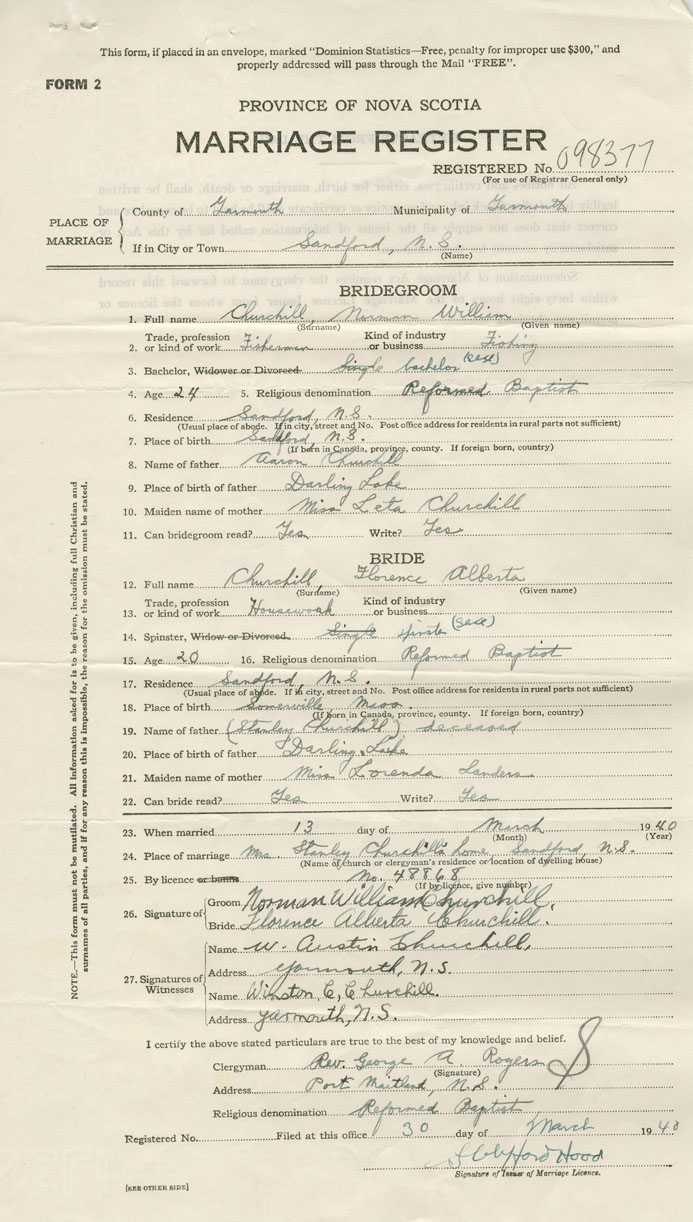 This form, if placed in an envelope, marked "Dominion Statistics—Free, penalty for improper use $300," and
properly addressed will pass through the Mail "FREE".
FORM 2
PROVINCE OF NOVA SCOTIA
MARRIAGE REGISTER
REGISTERED No. 098377
(For use of Registrar General only)
PLACE OF MARRIAGE
County of Yarmouth Municipality of Yarmouth
If in City or Town Sandford, N.S.
(Name)
BRIDEGROOM
1. Full name Churchill, Norman William
(Surname) (Given name)
2. Trade, profession or kind of work Fisherman Kind of industry or business Fishing
3. Bachelor, Widower or Divorced Single bachelor
4. Age 24 5. Religious denomination Reformed Baptist
6. Residence Sandford, N.S.
(Usual place of abode. If in city, street and No. Post office address for residents in rural parts not sufficient)
7. Place of birth Sandford, N.S.
(If born in Canada, province, county. If foreign born, country)
8. Name of father Aaron Churchill
9. Place of birth of father Darling Lake
10. Maiden name of mother Miss Leta Churchill
11. Can bridegroom read? Yes Write? Yes
BRIDE
12. Full name Churchill, Florence Alberta
(Surname) (Given name)
13. Trade, profession or kind of work Housework Kind of industry or business
14. Spinster, Widow or Divorced Single spinster
15. Age 20 16. Religious denomination Reformed Baptist
17. Residence Sandford, N.S.
(Usual place of abode. If in city, street and No. Post office address for residents in rural parts not sufficient)
18. Place of birth Somerville, Mass.
(If born in Canada, province, county. If foreign born, country)
19. Name of father (Stanley Churchill) deceased
20. Place of birth of father Darling Lake
21. Maiden name of mother Miss Lorenda Landers
22. Can bride read? Yes Write? Yes
23. When married 13 day of March 1940
(Month) (Year)
24. Place of marriage Mrs. Stanley Churchill's home, Sandford, N.S.
(Name of church or clergyman's residence or location of dwelling house)
25. By licence or banns No. 48868
(If by licence, give number)
26. Signature of
Groom Norman William Churchill.
Bride Florence Alberta Churchill.
27. Signatures of Witnesses
Name W. Austin Churchill,
Address Yarmouth, N.S.
Name Winston C, Churchill.
Address Yarmouth, N.S.
I certify the above stated particulars are true to the best of my knowledge and belief.
Clergyman Rev. George A. Rogers
(Signature)
Address Port Maitland, N.S.
Religious denomination Reformed Baptist
Registered No. Filed at this office 30 day of March 1940
Hood
Signature of Issuer of Marriage Licence.
[SEE OTHER SIDE]
NOTE.—This form must not be mutilated. All information asked for is to be given, including full Christian and
surnames of all parties, and if for any reason this is impossible, the reason for the omission must be stated.